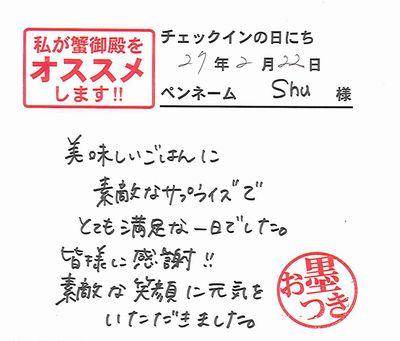 私が蟹御殿を
オススメ
します!!
チェックインの日にち
27年2月22日
ペンネーム Shu 様
美味しいごはんに
素敵なサプライズで
とても満足な一日でした。
皆様に感謝!!
素敵な笑顔に元気を
いただきました。
お墨つき